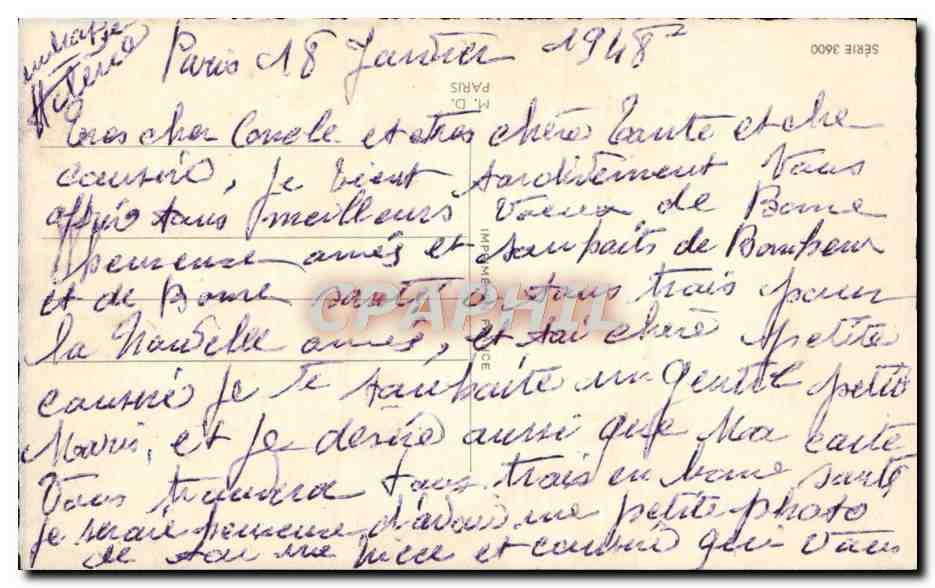 Paris 18 Janvier 1948
SÉRIE 3600
M. D.
PARIS
Tres cher Concle et tres chère Tante et che
cousine, je vient tardivement Vous
offrir tous meilleurs Voeux de Bonne
heureuse anné et souhaits de Bonheur
et de Bonne santé a tous trois pour
la Nouvelle anné, et toi chère petite
cousine je te souhaite un gentil petit
Maris, et je désire aussi que Ma carte
Vous trouvera tous trois en bonne santé
je serais heureuse d'avoir une petite photo
de toi ma niece et cousine qui Vous
IMPRIMÉ FRANCE
CPAPHIL